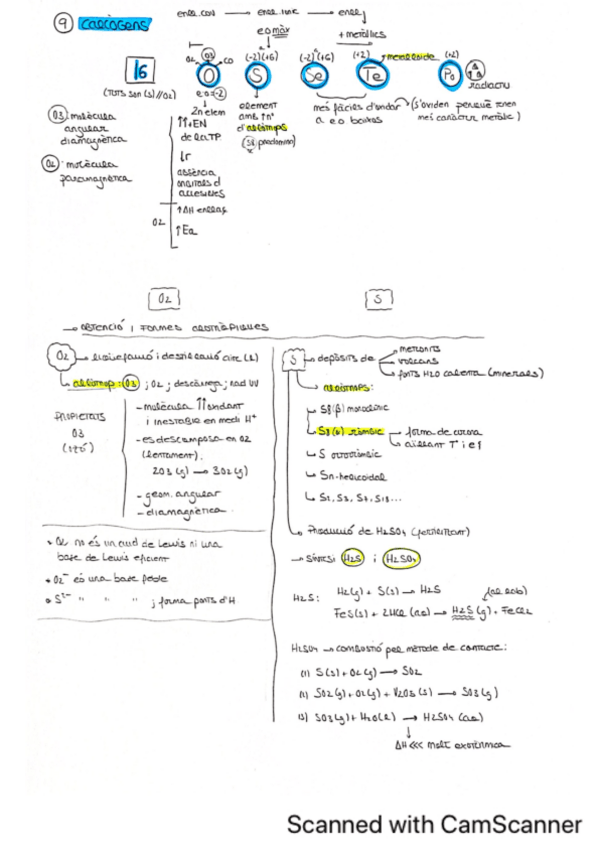 9 CALCÒGENS
enll. cov → enll. iònic → enllaç
e.o màx
+ metàl·lics
O2 O3 CO (-2)(+6) (-2)(+6) (+2) metal·loide (+2)
16 O S Se Te Po
radioactiu
(TOTS són (s) // O2)
e.o = -2
O3: molècula
angular
diamagnètica
O2: molècula
paramagnètica
2n elem
↑↑ EN
de la T.P.
↓r
absència
orbitals d
accessibles
O2
↑ΔH enllaç
↑Ea
element
amb ↑nº
d'al·lòtrops
(S8 predomina)
més fàcils d'oxidar
a e.o baixos
(s'oxiden perquè tenen
més caràcter metàl·lic)
O2
S
→ OBTENCIÓ I FORMES AL·LOTRÒPIQUES
O2 → liqüefacció i destil·lació aire (l)
→ al·lòtrop: O3 ; O2 ; descàrrega ; rad UV
PROPIETATS
O3
(ozó)
- molècula ↑↑ oxidant
i inestable en medi H+
- es descomposa en O2
(lentament).
2O3 (g) → 3O2 (g)
- geom. angular
- diamagnètica
• O2 no és un àcid de Lewis ni una
base de Lewis eficient
• O2- és una base feble
• S2- " " " ; forma ponts d'H
S → dipòsits de
meteorits
volcans
fonts H2O calenta (minerals)
→ al·lòtrops:
→ S8(β) monoclínic
→ S8(α) ròmbic
forma de corona
aïllant T i e-
→ S ortoròmbic
→ Sn-helicoidal
→ S2, S3, S7, S18...
→ Producció de H2SO4 (fertilitzant)
→ SÍNTESI H2S i H2SO4
H2S: H2(g) + S(s) → H2S
(al lab)
FeS(s) + 2HCl (aq) → H2S (g) + FeCl2
H2SO4 → combustió pel mètode de contacte:
(1) S(s) + O2(g) → SO2
(2) SO2(g) + O2(g) + V2O5 (s) → SO3(g)
(3) SO3(g) + H2O(l) → H2SO4 (aq)
↓
ΔH <<< molt exotèrmica
Scanned with CamScanner